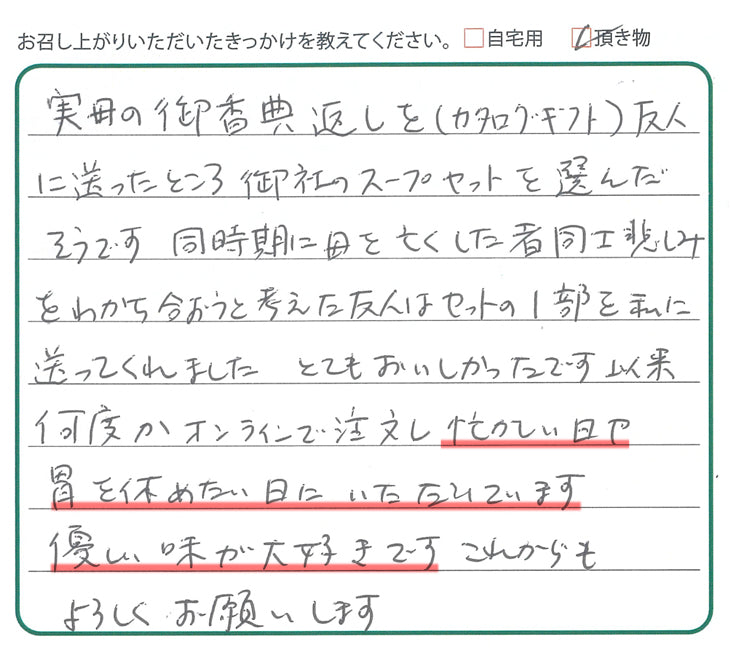 お召し上がりいただいたきっかけを教えてください。 □自宅用 ☑頂き物
実母の御香典返しを(カタログギフト)友人
に送ったところ御社のスープセットを選んだ
そうです 同時期に母を亡くした者同士悲しみ
をわかち合おうと考えた友人はセットの1部を私に
送ってくれました とてもおいしかったです 以来
何度かオンラインで注文し 忙しい日や
胃を休めたい日に いただいています
優しい味が大好きです これからも
よろしくお願いします